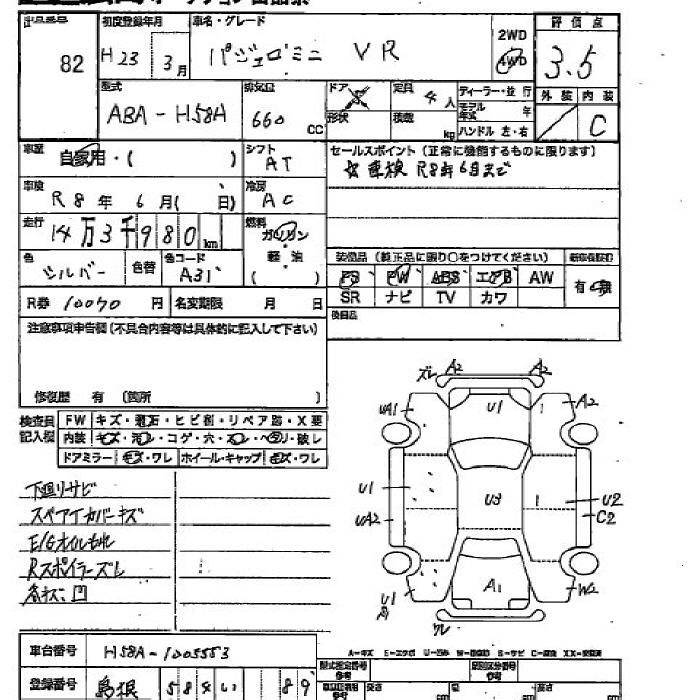 出品番号 初度登録年月 車名・グレード 2WD 評価点
82 H23 3月 パジェロミニ VR 4WD 3.5
型式 排気量 ドア 5 定員 4人 ディーラー・並行 外装 内装
ABA-H58A 660 CC 形状 積載 kg モデル年式 年 C
ハンドル 左・右
車歴 自家用・( ) シフト AT セールスポイント(正常に機能するものに限ります)
☆車検 R8年6月まで
車検 R8年 6月( 日) 冷房 AC
走行 14万3千980km 燃料 ガソリン
軽・油
( )
色 シルバー 色替 色コード A31
装備品(純正品に限り○をつけてください)
PS PW ABS エアB AW 有・無
SR ナビ TV カワ
R券 10070円 名変期限 月 日
後日品
注意事項申告欄(不具合内容等は具体的に記入して下さい)
修復歴 有 (箇所 )
検査員記入欄
FW キズ・飛石・ヒビ割・リペア跡・X要
内装 キズ・汚れ・コゲ・穴・スレ・ヘタリ・破レ
ドアミラー キズ・ワレ ホイール・キャップ キズ・ワレ
下廻りサビ
スペアタイヤカバーキズ
E/Gオイルもれ
Rスポイラーズレ
各キズ凹
ズレ A2 A2
UA1 U1 A2
U1 U3 U2
UA2 C2
U1 A1 W2
ワレ
A-キズ E-エクボ U-凹み W-補修跡 S-サビ C-腐蝕 XX-交換済
車台番号 H58A-1005553
型式指定番号 類別区分番号
登録番号 島根 584 い 89
長さ cm 幅 cm 高さ cm